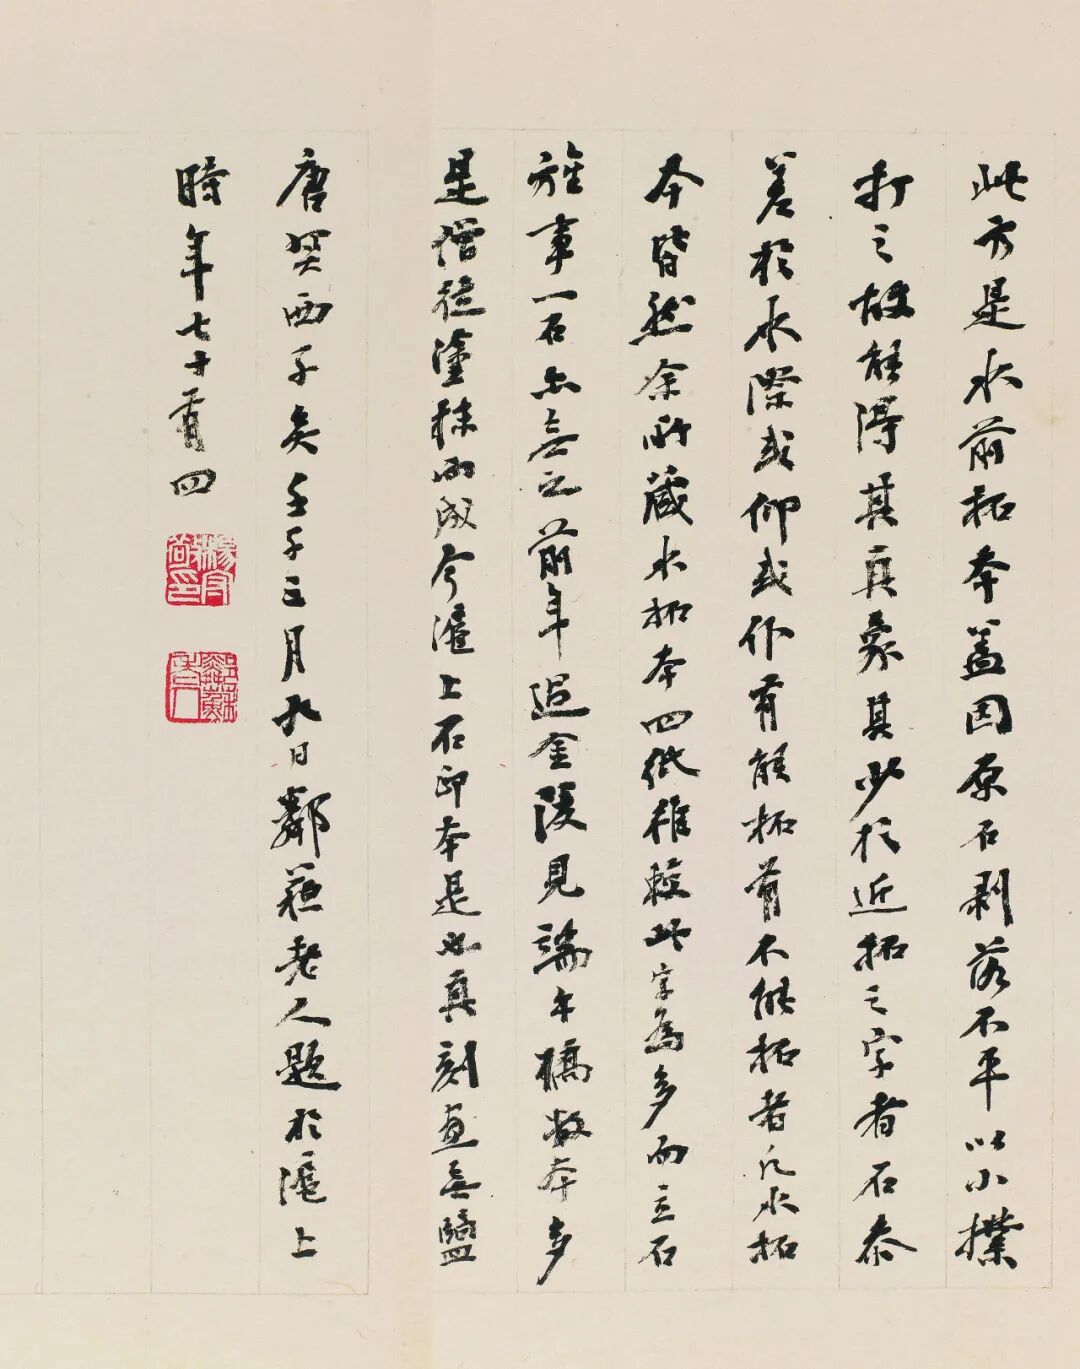 此方是水前拓本蓋因原石剥落不平以小撲
打之故能得其真象其少於近拓之字者石泰
差於水際或仰或仆有能拓有不能拓者凡水拓
本皆然余所藏水拓本四紙稚較此字為多而立石
旌事一石亦無之前年過金陵見端午橋數本多
是僧徒塗抹而成今滬上石印本是也真刻畫無鹽
唐突西子矣壬子三月九日鄰蘇老人題於滬上
時年七十有四
楊守敬印
鄰蘇老人